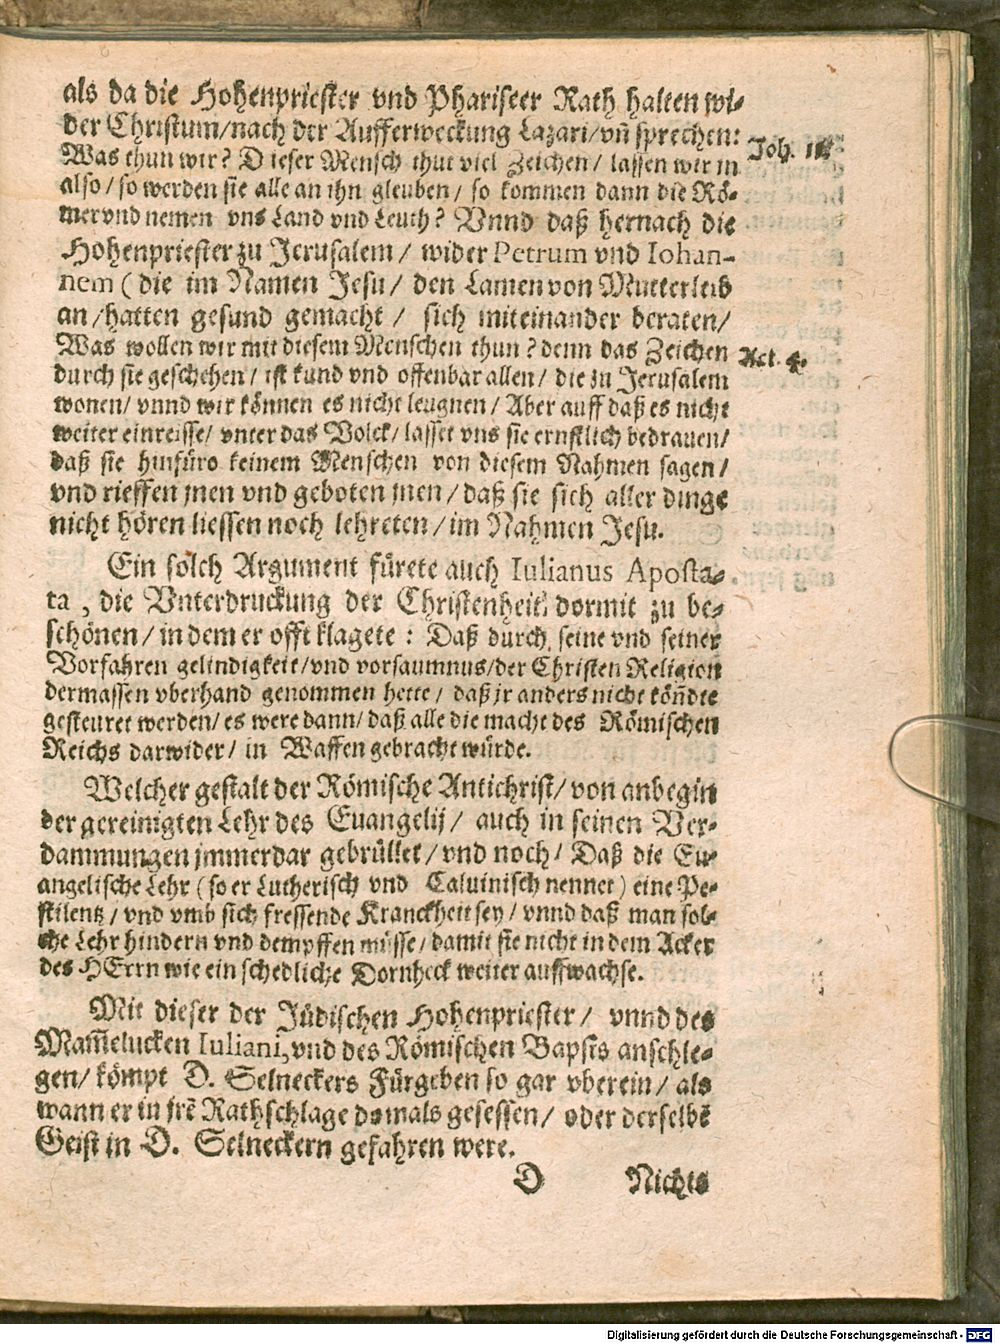 als da die Hohenpriester vnd Phariseer Rath halten wi-
der Christum/nach der Aufferweckung Lazari/vñ sprechen:
Joh. 11.
Was thun wir? Dieser Mensch thut viel Zeichen/ lassen wir jn
also/ so werden sie alle an ihn gleuben/ so kommen dann die Rö-
mer vnd nemen vns Land vnd Leuth? Vnnd daß hernach die
Hohenpriester zu Jerusalem/ wider Petrum vnd Iohan-
nem ( die im Namen Jesu/ den Lamen von Mutterleib
an/hatten gesund gemacht / sich miteinander beraten/
Was wollen wir mit diesem Menschen thun? denn das Zeichen
Act. 4.
durch sie geschehen/ ist kund vnd offenbar allen/ die zu Jerusalem
wonen/ vnnd wir können es nicht leugnen/ Aber auff daß es nicht
weiter einreisse/ vnter das Volck/ lasset vns sie ernstlich bedrauen/
daß sie hinfüro keinem Menschen von diesem Nahmen sagen/
vnd rieffen jnen vnd geboten jnen/ daß sie sich aller dinge
nicht hören liessen noch lehreten/im Nahmen Jesu.
Ein solch Argument fürete auch Iulianus Aposta-
ta , die Vnterdruckung der Christenheit dormit zu be-
schönen/ in dem er offt klagete : Daß durch seine vnd seiner
Vorfahren gelindigkeit/vnd vorsaumnus/der Christen Religion
dermassen vberhand genommen hette/ daß jr anders nicht köñdte
gesteuret werden/ es were dann/ daß alle die macht des Römischen
Reichs darwider/ in Waffen gebracht würde.
Welcher gestalt der Römische Antichrist/ von anbegin
der gereinigten Lehr des Euangelij/ auch in seinen Ver-
dammungen jmmerdar gebrüllet/ vnd noch/ Daß die Eu-
angelische Lehr (so er Lutherisch vnd Caluinisch nennet) eine Pe-
stilentz/ vnd vmb sich fressende Kranckheit sey/ vnnd daß man sol-
che Lehr hindern vnd dempffen müsse/ damit sie nicht in dem Acker
des HErrn wie ein schedliche Dornheck weiter auffwachse.
Mit dieser der Jüdischen Hohenpriester/ vnnd des
Mam̃elucken Iuliani, vnd des Römischen Bapsts anschle-
gen/ kömpt D. Selneckers Fürgeben so gar vberein/ als
wann er in jrẽ Rathschlage domals gesessen/ oder derselbẽ
Geist in D. Selneckern gefahren were.
D Nichts
Digitalisierung gefördert durch die Deutsche Forschungsgemeinschaft - DFG